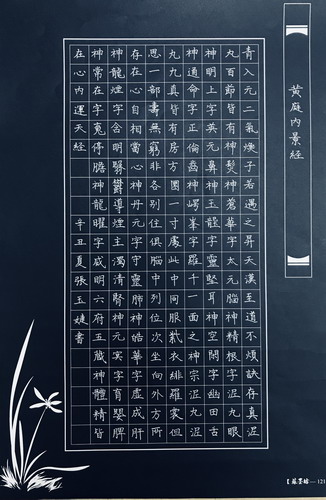 黃庭內景經
青入元二氣煥子若遇之昇天漢至道不煩訣存真泥
丸百節皆有神髮神蒼華字太元腦神精根字泥丸眼
神明上字英元鼻神玉壟字靈堅耳神空閑字幽田舌
神通命字正倫齒神崿峯字羅千一面之神宗泥丸泥
丸九真皆有房方圓一寸處此中同服紫衣緋羅裳但
思一部壽無窮非各別住俱腦中列位次坐向外方所
存在心自相當心神丹元字守靈肺神皓華字虛成肝
神龍煙字含明翳鬱導煙主濁清腎神元冥字育嬰脾
神常在字䰟停膽神龍曜字威明六府五藏神體精皆
在心內運天經
辛丑夏張玉婕書
121